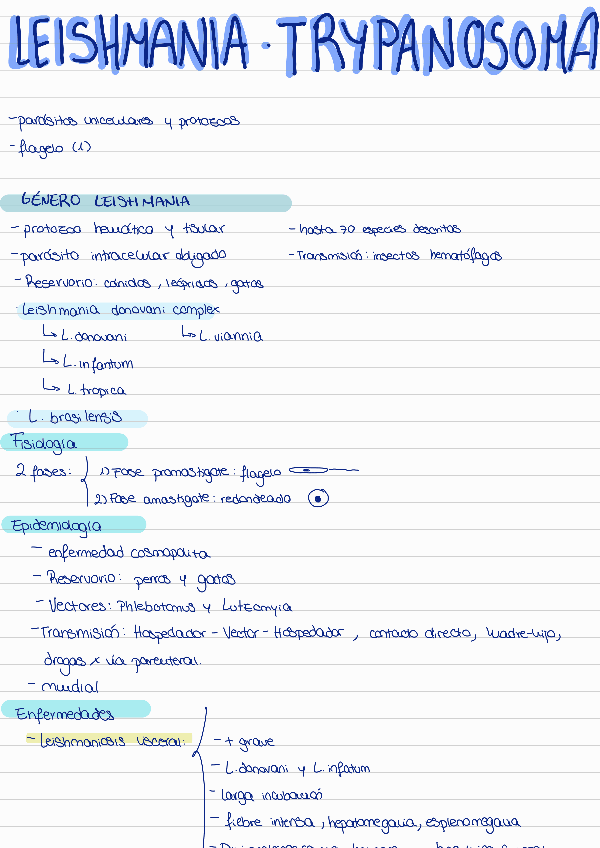 LEISHMANIA · TRYPANOSOMA
- parásitos unicelulares y protozoos
- flagelo (1)
GÉNERO LEISHMANIA
- protozoo hemático y tisular
- hasta 70 especies descritas
- parásito intracelular obligado
- Transmisión: insectos hematófagos
- Reservorio: cánidos, lepóridos, gatos
· Leishmania donovani complex
↳ L. donovani ↳ L. viannia
↳ L. infantum
↳ L. tropica
· L. brasilensis
Fisiología
2 fases: 1) Fase promastigote: flagelo
2) Fase amastigote: redondeado
Epidemiología
- enfermedad cosmopolita
- Reservorio: perros y gatos
- Vectores: Phlebotomus y Lutzomyia
- Transmisión: Hospedador - Vector - Hospedador, contacto directo, madre-hijo,
drogas x vía parenteral.
- mundial
Enfermedades
- Leishmaniosis visceral:
- + grave
- L. donovani y L. infatum
- larga incubación
- fiebre intensa, hepatomegalia, esplenomegalia